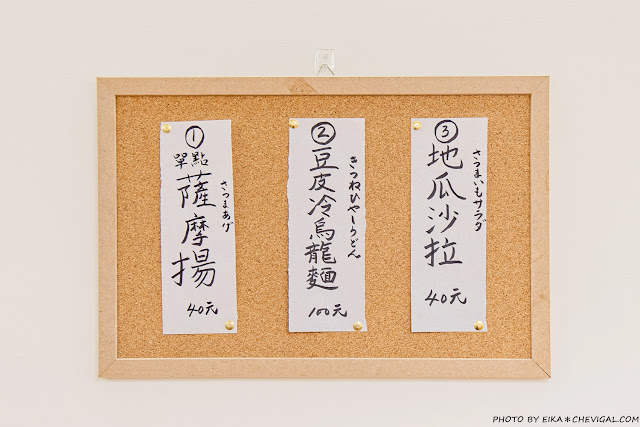 ①
單點
薩摩揚
さつまあげ
40元
②
豆皮冷烏龍麵
きつねひやしうどん
100元
③
地瓜沙拉
さつまいもサラダ
40元
PHOTO BY EIKA＊CHEVIGAL.COM